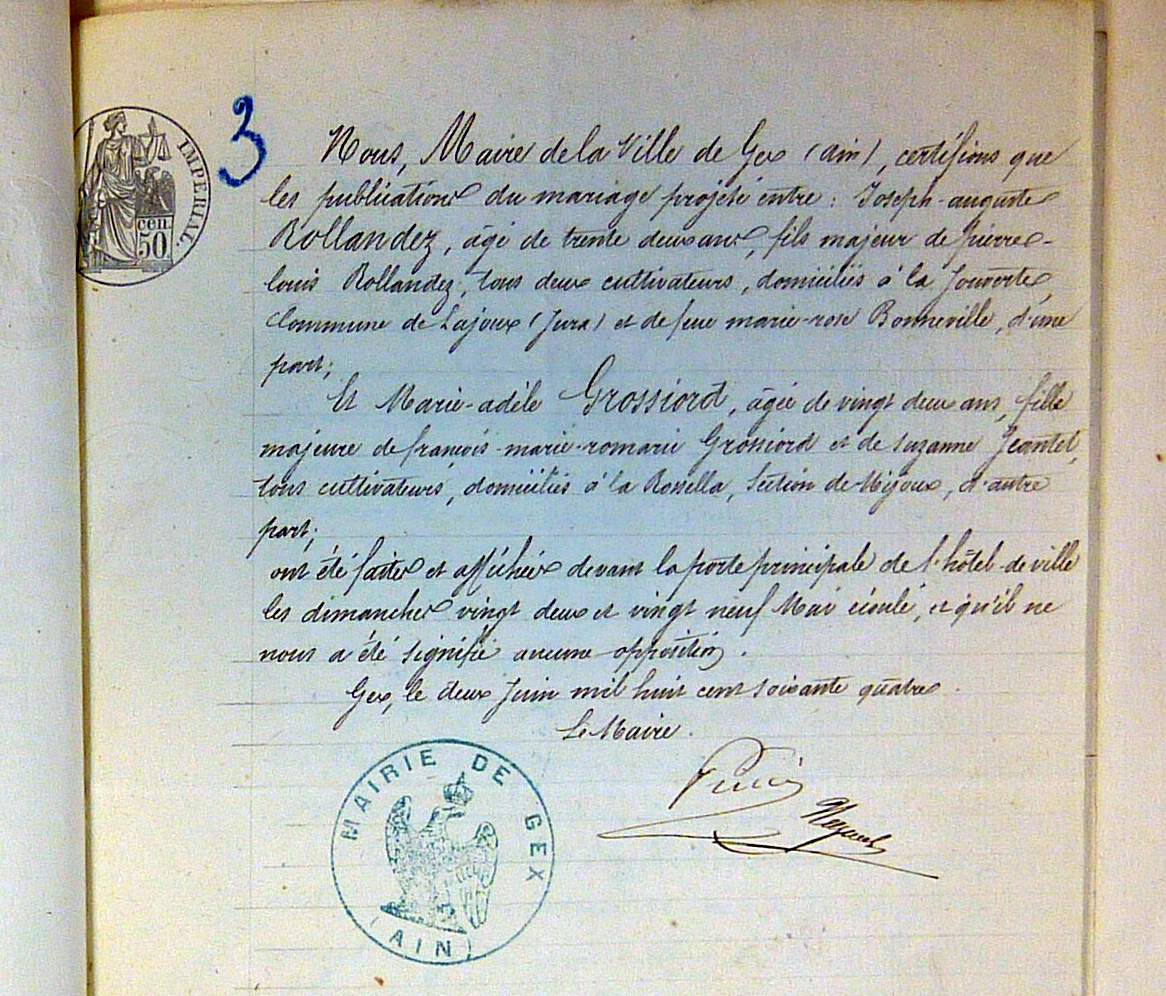 IMPERIAL.
CEN.
50
3
Nous, Maire de la Ville de Gex (ain), certifions que
les publications du mariage projeté entre : Joseph-auguste
Rollandez, âgé de trente deux ans, fils majeur de pierre-
louis Rollandez, tous deux cultivateurs, domiciliés à la
Commune de Lajoux (Jura) et de feue marie-rose Bonneville, d'une
part;
Et Marie-adèle Grossiord, âgée de vingt deux ans, fille
majeure de françois-marie-romarie Grossiord et de suzanne Jeantet,
tous cultivateurs, domiciliés à la Section de Mijoux, d'autre
part;
ont été faites et affichées devant la porte principale de l'hôtel-de-ville
les dimanches vingt deux et vingt neuf Mai écoulé, et qu'il ne
nous a été signifié aucune opposition.
Gex, le deux Juin mil huit cent soixante quatre.
Le Maire.
MAIRIE DE GEX
(AIN)